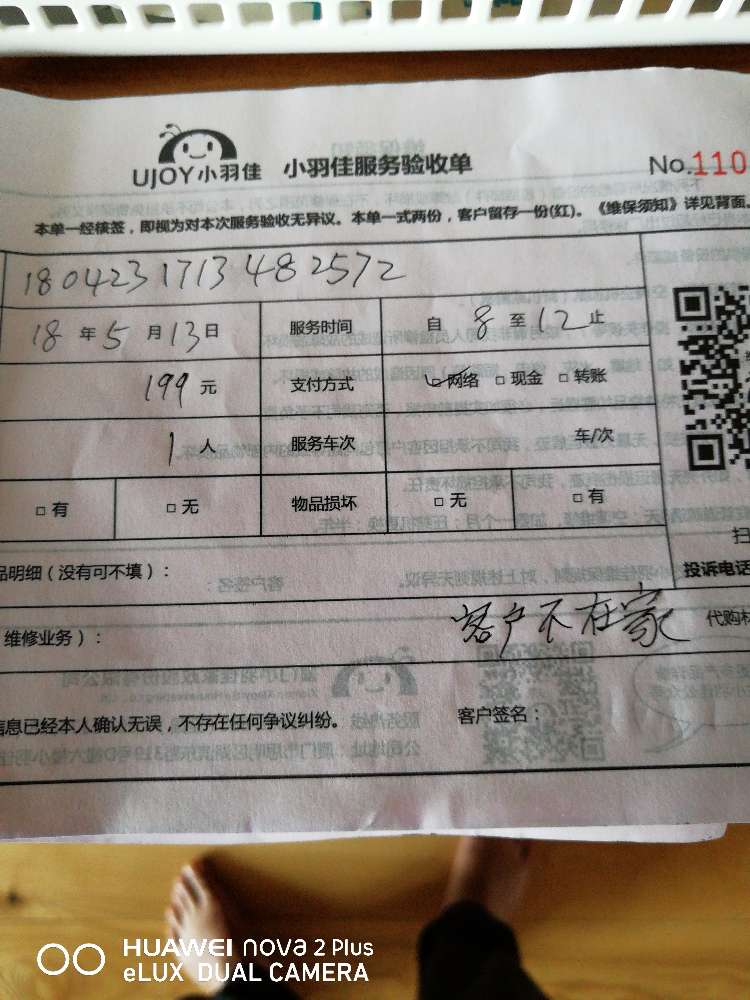 UJOY小羽佳 小羽佳服务验收单 No.110
本单一经核签，即视为对本次服务验收无异议。本单一式两份，客户留存一份(红)。《维保须知》详见背面。
1804231713482572
18 年 5 月 13 日 服务时间 自 8 至 12 止
199 元 支付方式 ☑网络 □现金 □转账
1 人 服务车次 车/次
□有 □无 物品损坏 □无 □有
品明细（没有可不填）： 投诉电话
维修业务）： 客户不在家 代购材
信息已经本人确认无误，不存在任何争议纠纷。 客户签名：
HUAWEI nova 2 Plus
eLUX DUAL CAMERA